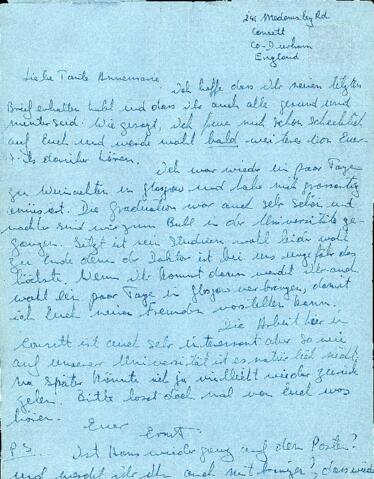 Medomsley Rd
Consett
Co-Durham
England
Liebe Tante Annemarie
Ich hoffe dass ihr meinen letzten
Brief erhalten habt und dass ihr auch alle gesund und
munter seid. Wie gesagt, ich freue mich schon schrecklich
auf Euch und werde wohl bald weiteres von Eurer
darüber hören.
Ich war wieder ein paar Tage
zu Weinachten in Glasgow und habe mich grossartig
amüsiert. Die Graduation war auch sehr schön und
nachher sind wir zum Ball in der Universität ge-
gangen. Jetzt ist mein Studium wohl leider wohl
zu Ende denn der Doktor ist bei uns ungefähr das
höchste. Wenn Ihr kommt dann werdet Ihr auch
wohl ein paar Tage in Glasgow verbringen, damit
ich Euch meinen Freunden vorstellen kann.
Die Arbeit hier in
Consett ist auch sehr interessant aber so wie
auf unserer Universität ist es natürlich nicht,
na später könnte ich ja vielleicht wieder zurück
gehen. Bitte lasst doch mal von Euch was
hören.
Euer
Ernst.
P.S. Ist Hans wieder ganz auf dem Posten?
und werdet ihr ihn auch mit bringen?, das